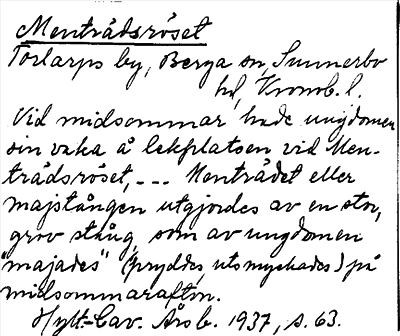 Mentrådsröset
Torlarps by, Berga sn, Sunnerbo
hd, Kronob. l.
Vid midsommar hade ungdomen
sin vaka å lekplatsen vid Men-
trådsröset, --- Mentrådet eller
majstången utgjordes av en stor,
grov stång, som av ungdomen
"majades" (pryddes, utsmyckades) på
midsommarafton.
Hylt-Cav. Årsb. 1937, s. 63.